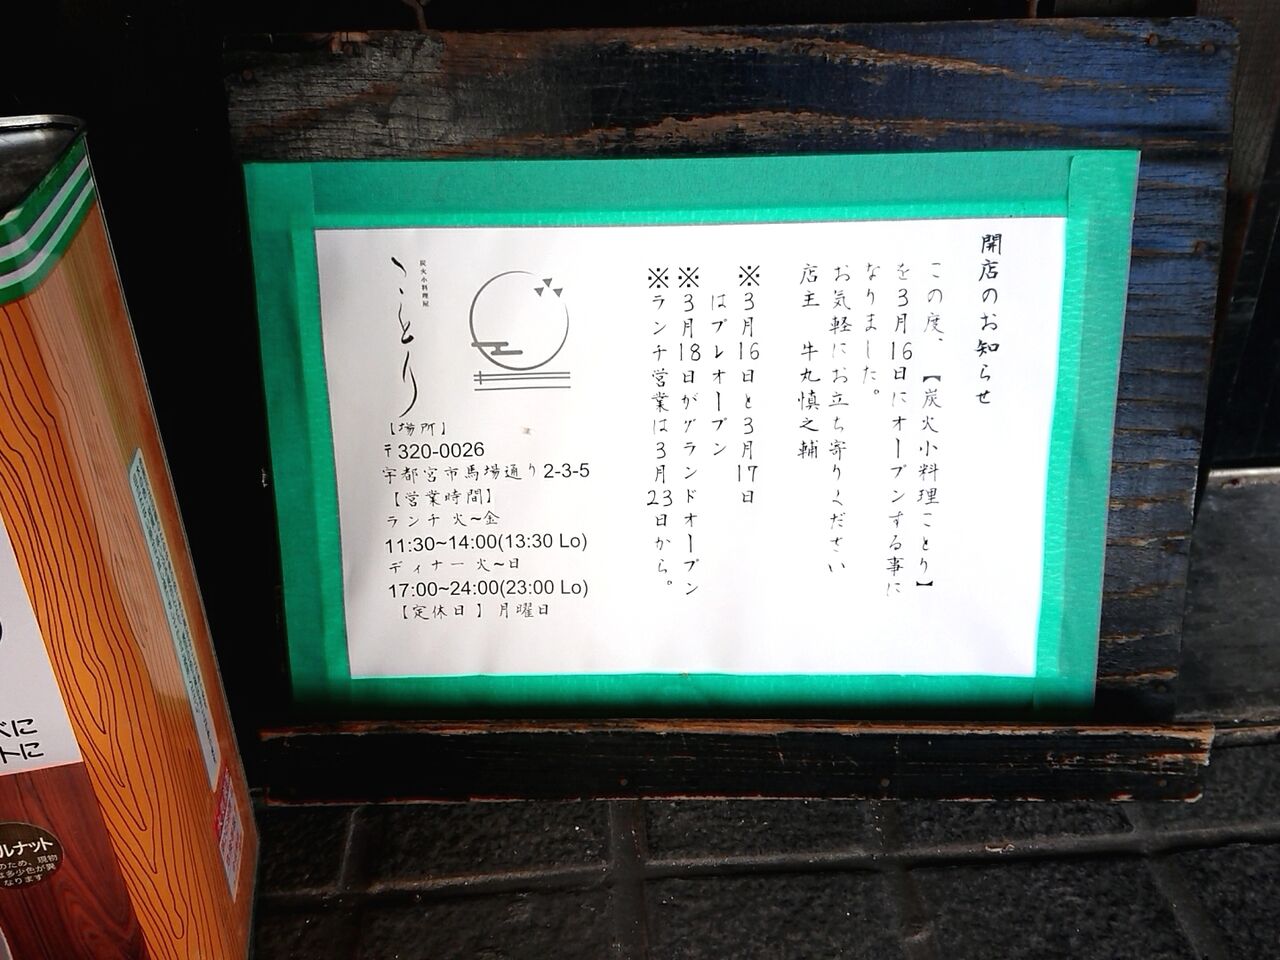 開店のお知らせ
この度、【炭火小料理ことり】
を3月16日にオープンする事に
なりました。
お気軽にお立ち寄りください
店主 牛丸慎之輔
※3月16日と3月17日
はプレオープン
※3月18日がグランドオープン
※ランチ営業は3月23日から。
炭火小料理屋
ことり
【場所】
〒320-0026
宇都宮市馬場通り2-3-5
【営業時間】
ランチ 火~金
11:30~14:00(13:30 Lo)
ディナー 火~日
17:00~24:00(23:00 Lo)
【定休日】月曜日
べに
トに
ルナット
のため、現物
は多少色が異
なります